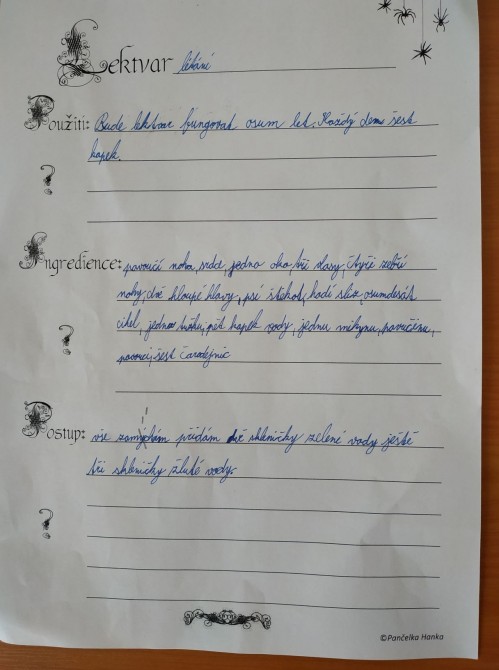 Lektvar létání
Použití: Bude lektvar fungovat osum let. Každý den šest
kapek.
?
Ingredience: pavoučí noha, srdce, jedno oko, tři vlasy, čtyři zebří
nohy, dvě hloupé hlavy, psí štěkot, hadí sliz, osumdesát
cihel, jedna trička, pět kapek vody, jednu mikynu, pavučinu,
?
pavouci, šest čarodejnic
Postup: vše zamýchám přidám dvě skleničky zelené vody ještě
tři skleničky žluté vody.
?
©Pančelka Hanka